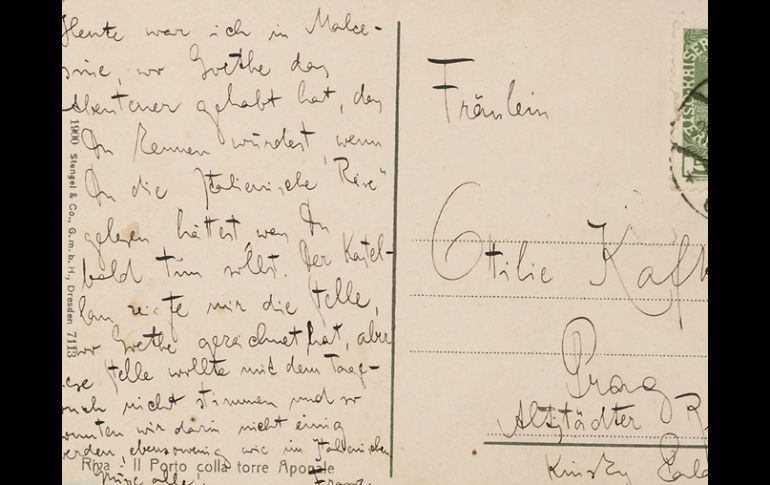 Heute war ich in Malce-
sine, wo Goethe das
Abenteuer gehabt hat, das
Du kennen würdest, wenn
Du die „Italienische Reise“
gelesen hättest, was Du
bald tun sollst. Der Kastel-
lan zeigte mir die Stelle,
wo Goethe gezeichnet hat, aber
diese Stelle wollte mit dem Tage-
buch nicht stimmen und so
konnten wir darin nicht einig
werden, ebensowenig wie im Italienischen
Grüße alle! Franz
Riva - Il Porto colla torre Aponale
1900 Stengel & Co., G. m. b. H., Dresden 7113
Fräulein
Ottilie Kafk
Prag
Altstädter R
Kinsky Pala
KAISER